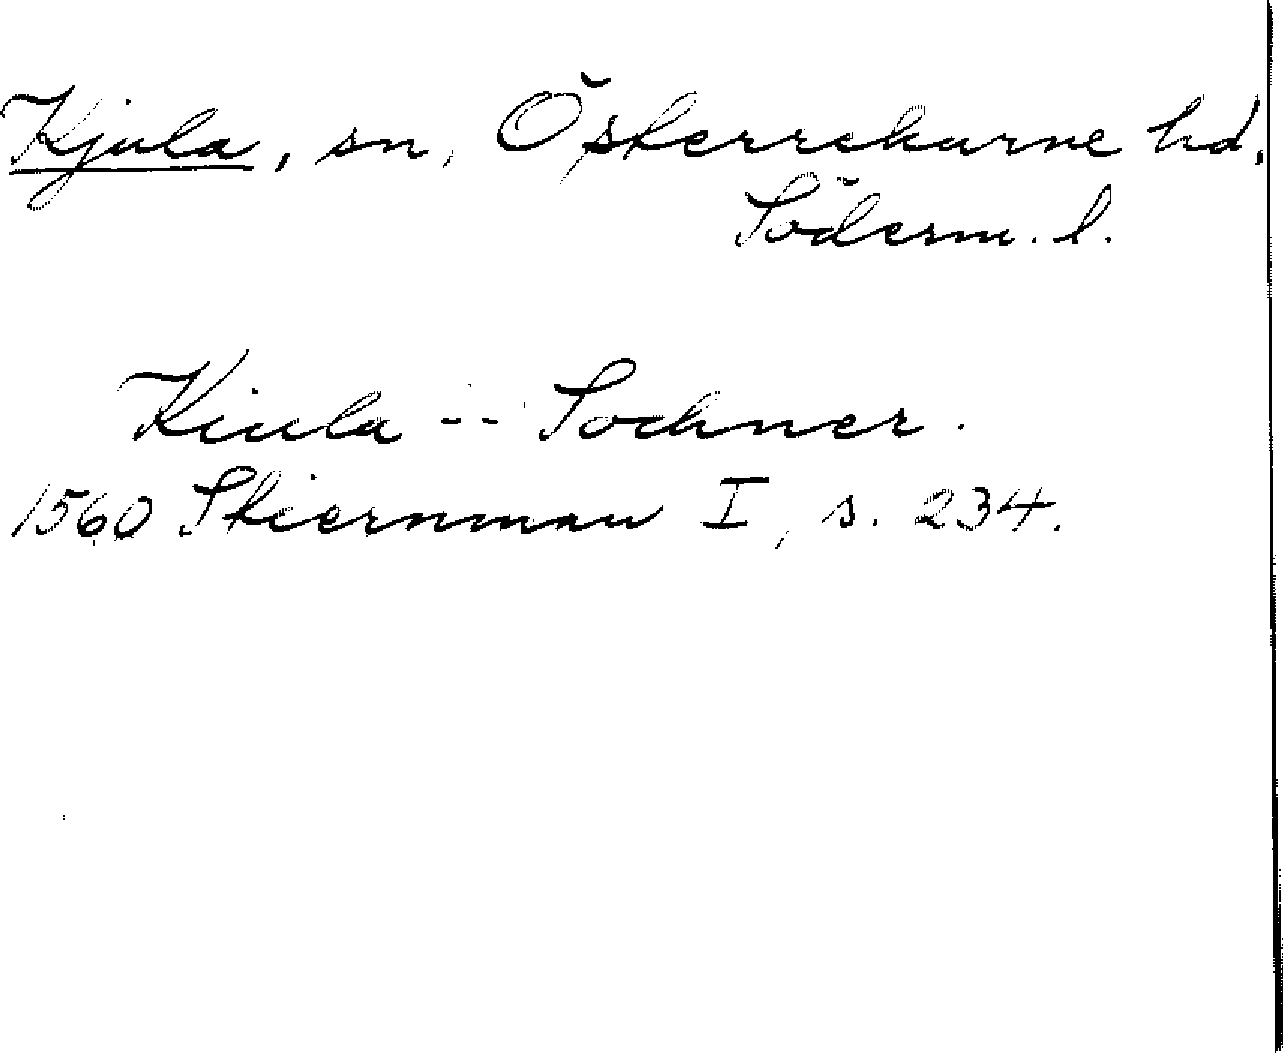 Kjula, sn, Österrekarne hd.
Söderm. l.
Kiula -- Sochner.
1560 Stiernman I, s. 234.